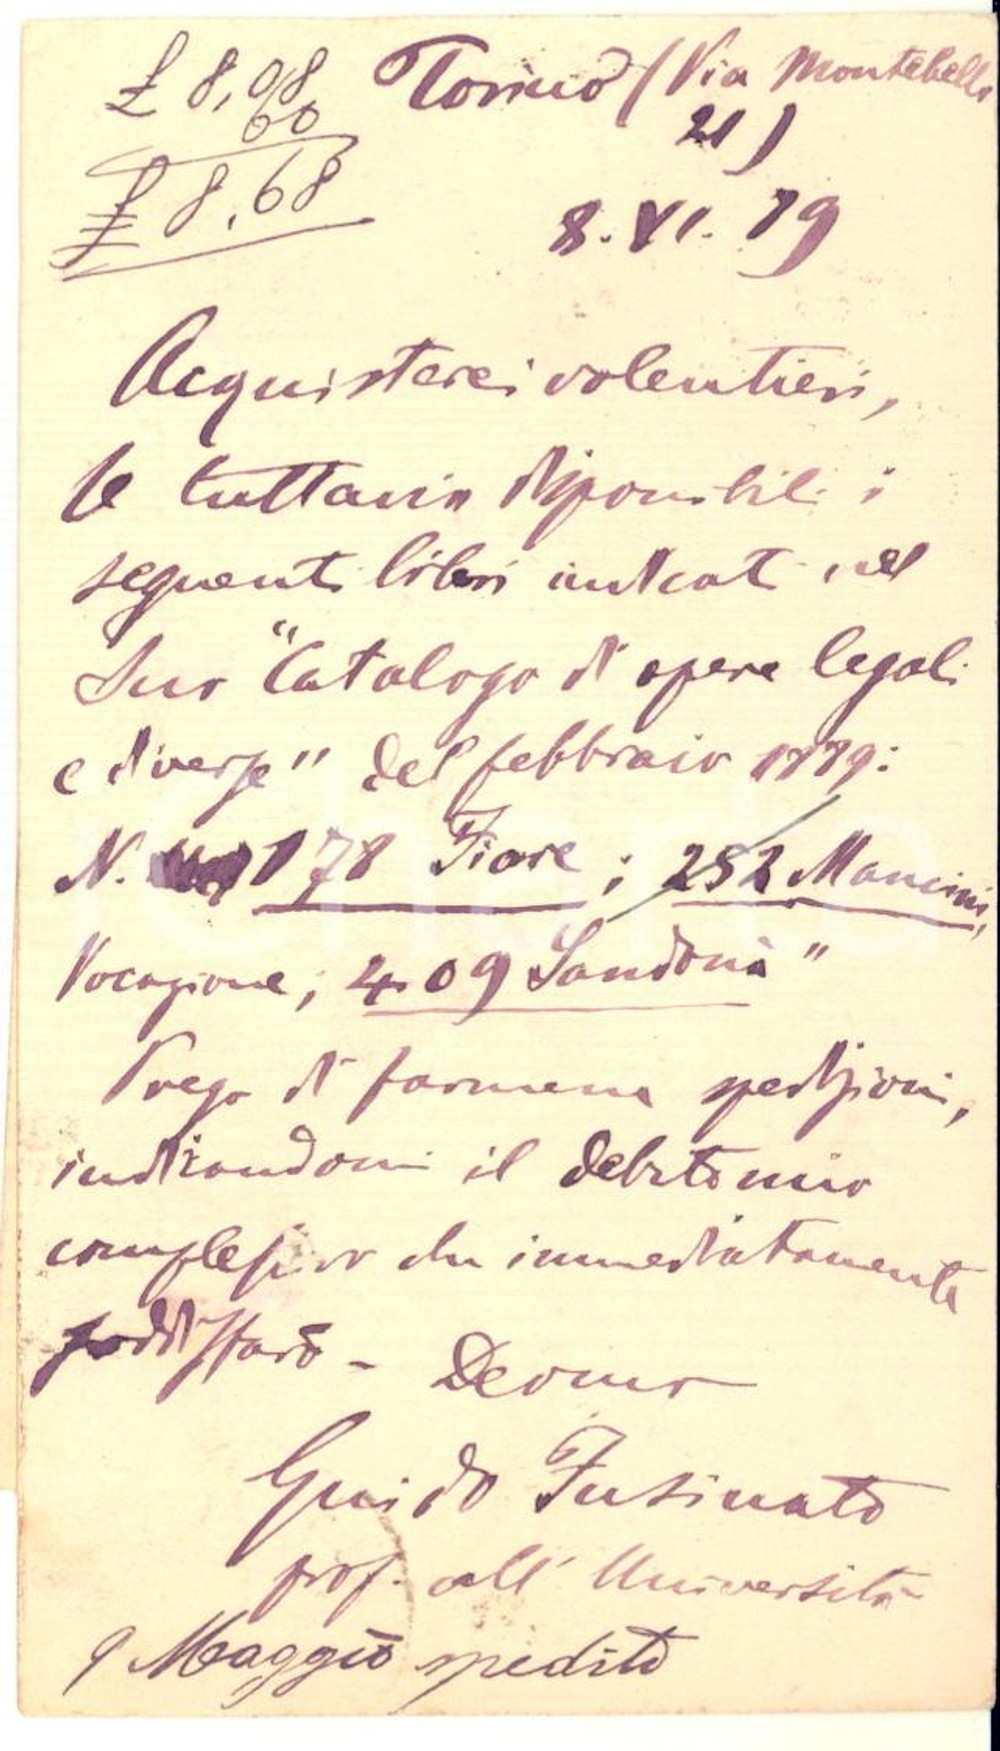 £ 8,08
60
£ 8,68
Torino (Via Montebello
21)
8. VI. 89
Acquisterei volentieri,
se tuttavia disponibili i
seguenti libri indicati nel
Suo "Catalogo di opere legali
e diverse" del febbraio 1889:
N. 178 Fiore; 252 Mancini,
Vocazione; 409 Sandonà"
Prego di farmene spedizioni,
indicandomi il debito mio
complessivo che immediatamente
soddisfarò - Devmo
Guido Fusinato
prof. all' Università
9 Maggio spedito